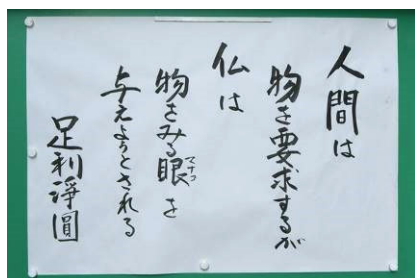 人間は
物を要求するが
仏は
物をみる眼マナコを
与えようとされる
足利淨圓